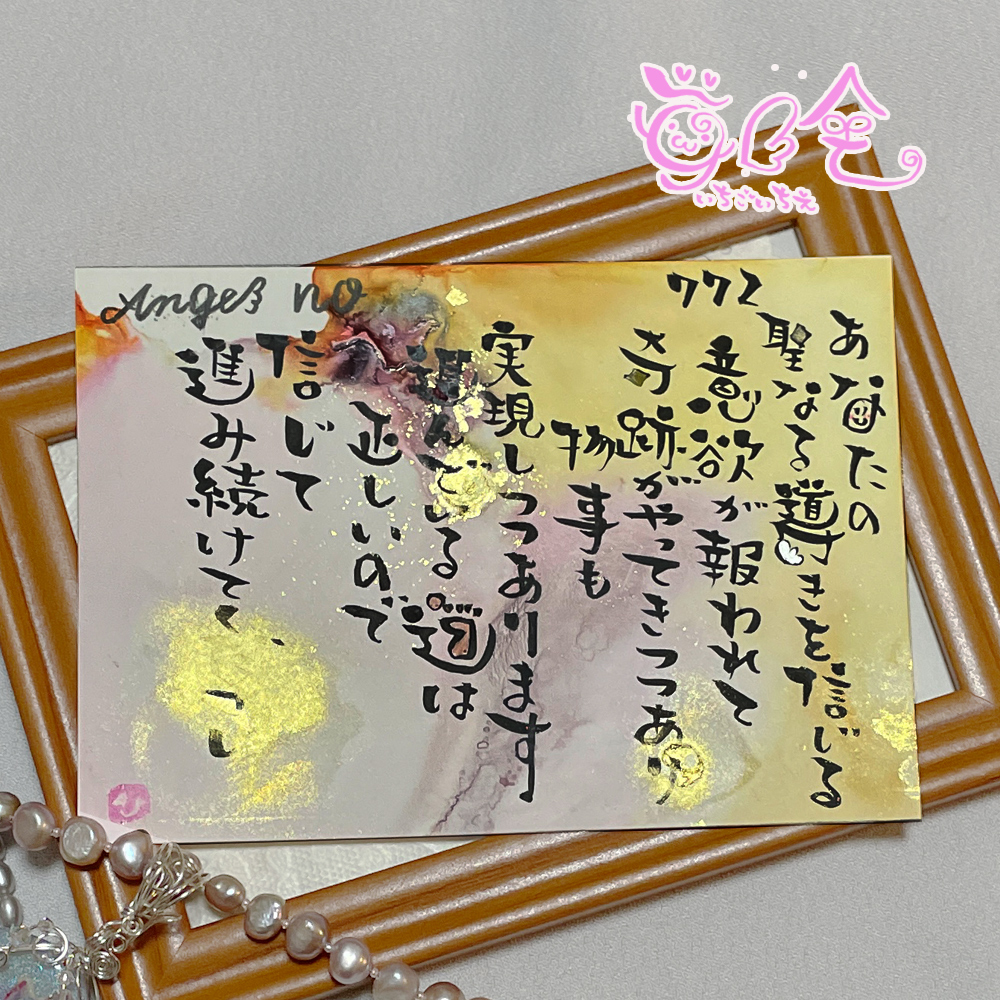 いちごいちえ
Angel no
772
あなたの
聖なる導きを信じる
意欲が報われて
奇跡がやってきつつあり
物事も
実現しつつあります
進んでいる道は
正しいので
信じて
進み続けて、